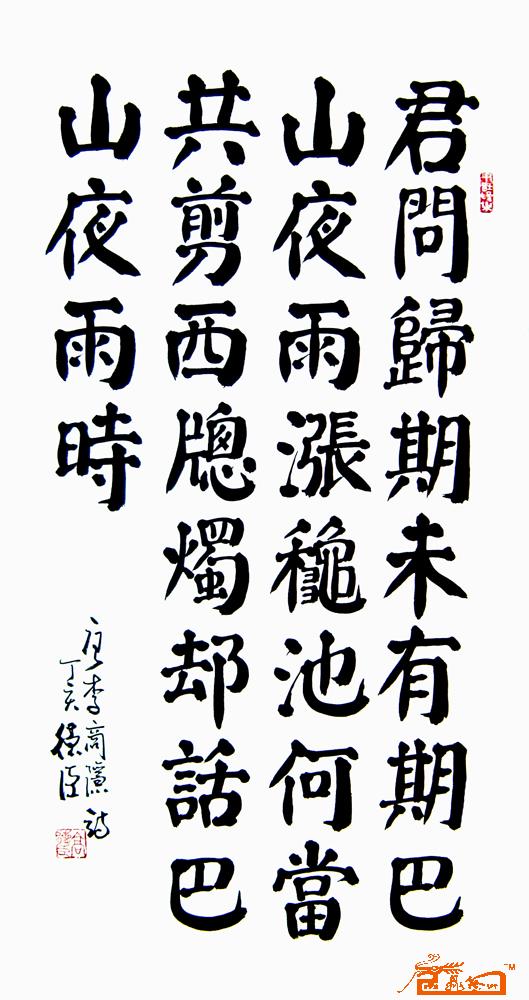 君問歸期未有期巴
山夜雨漲穐池何當
共剪西牕燭却話巴
山夜雨時
唐李商隱詩
丁亥德臣